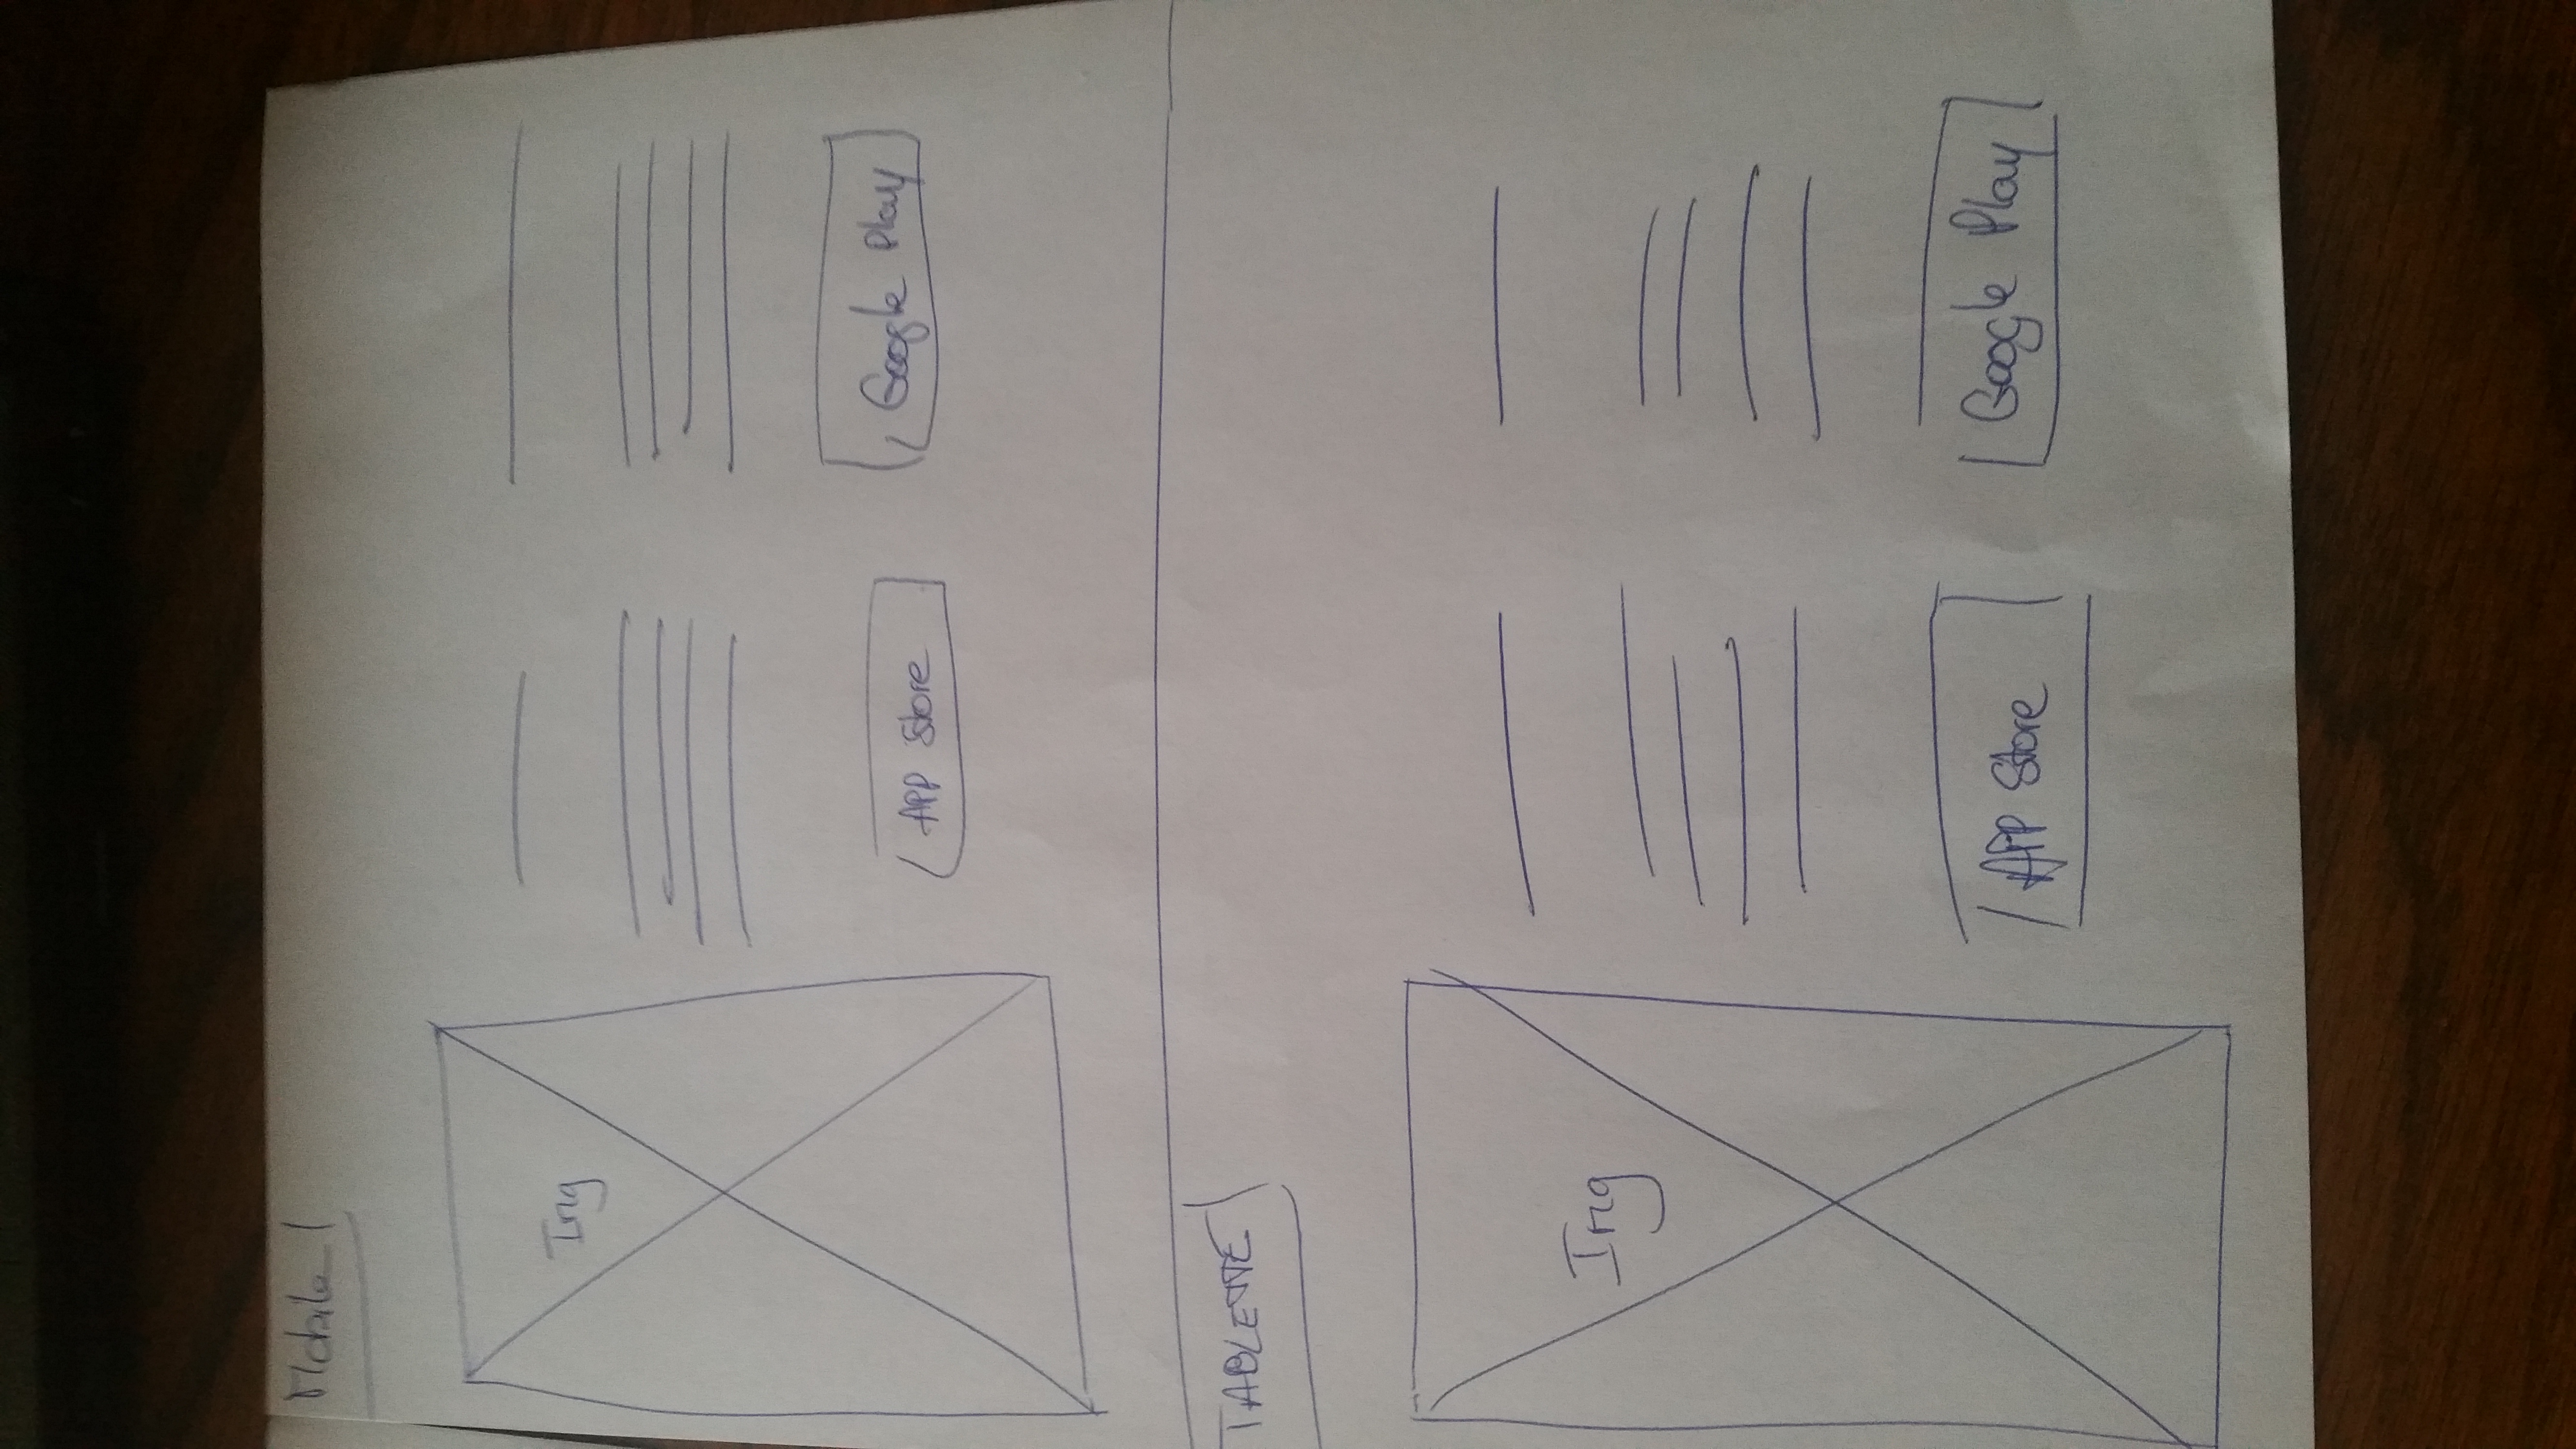 Mobile
Img
App Store
Google Play
TABLETTE
Img
App Store
Google Play